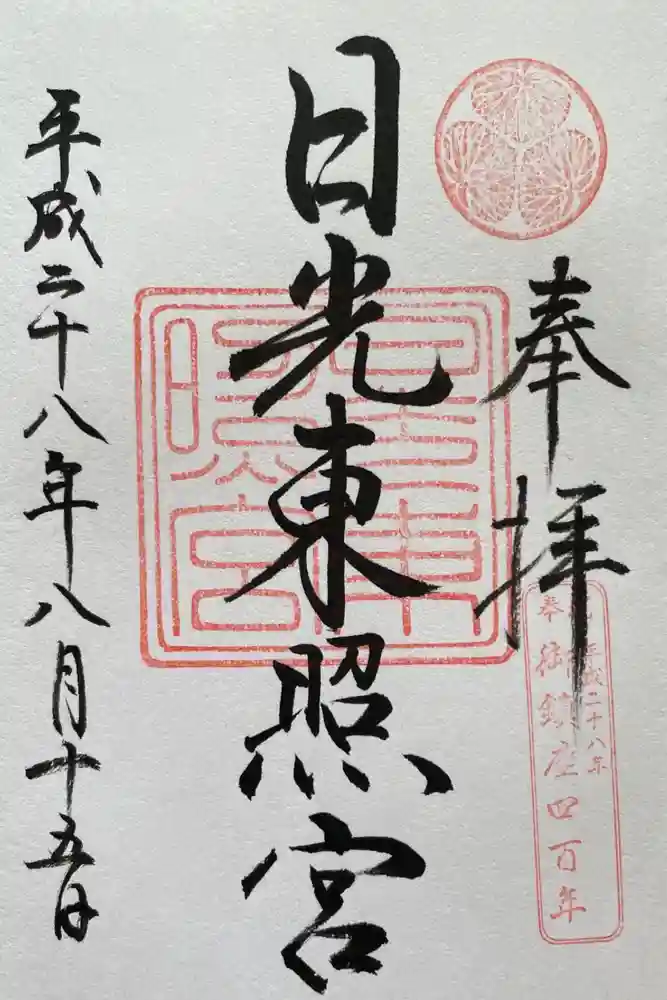 奉拝
奉 御鎮座四百年
平成二十八年
日光東照宮
平成二十八年八月十五日